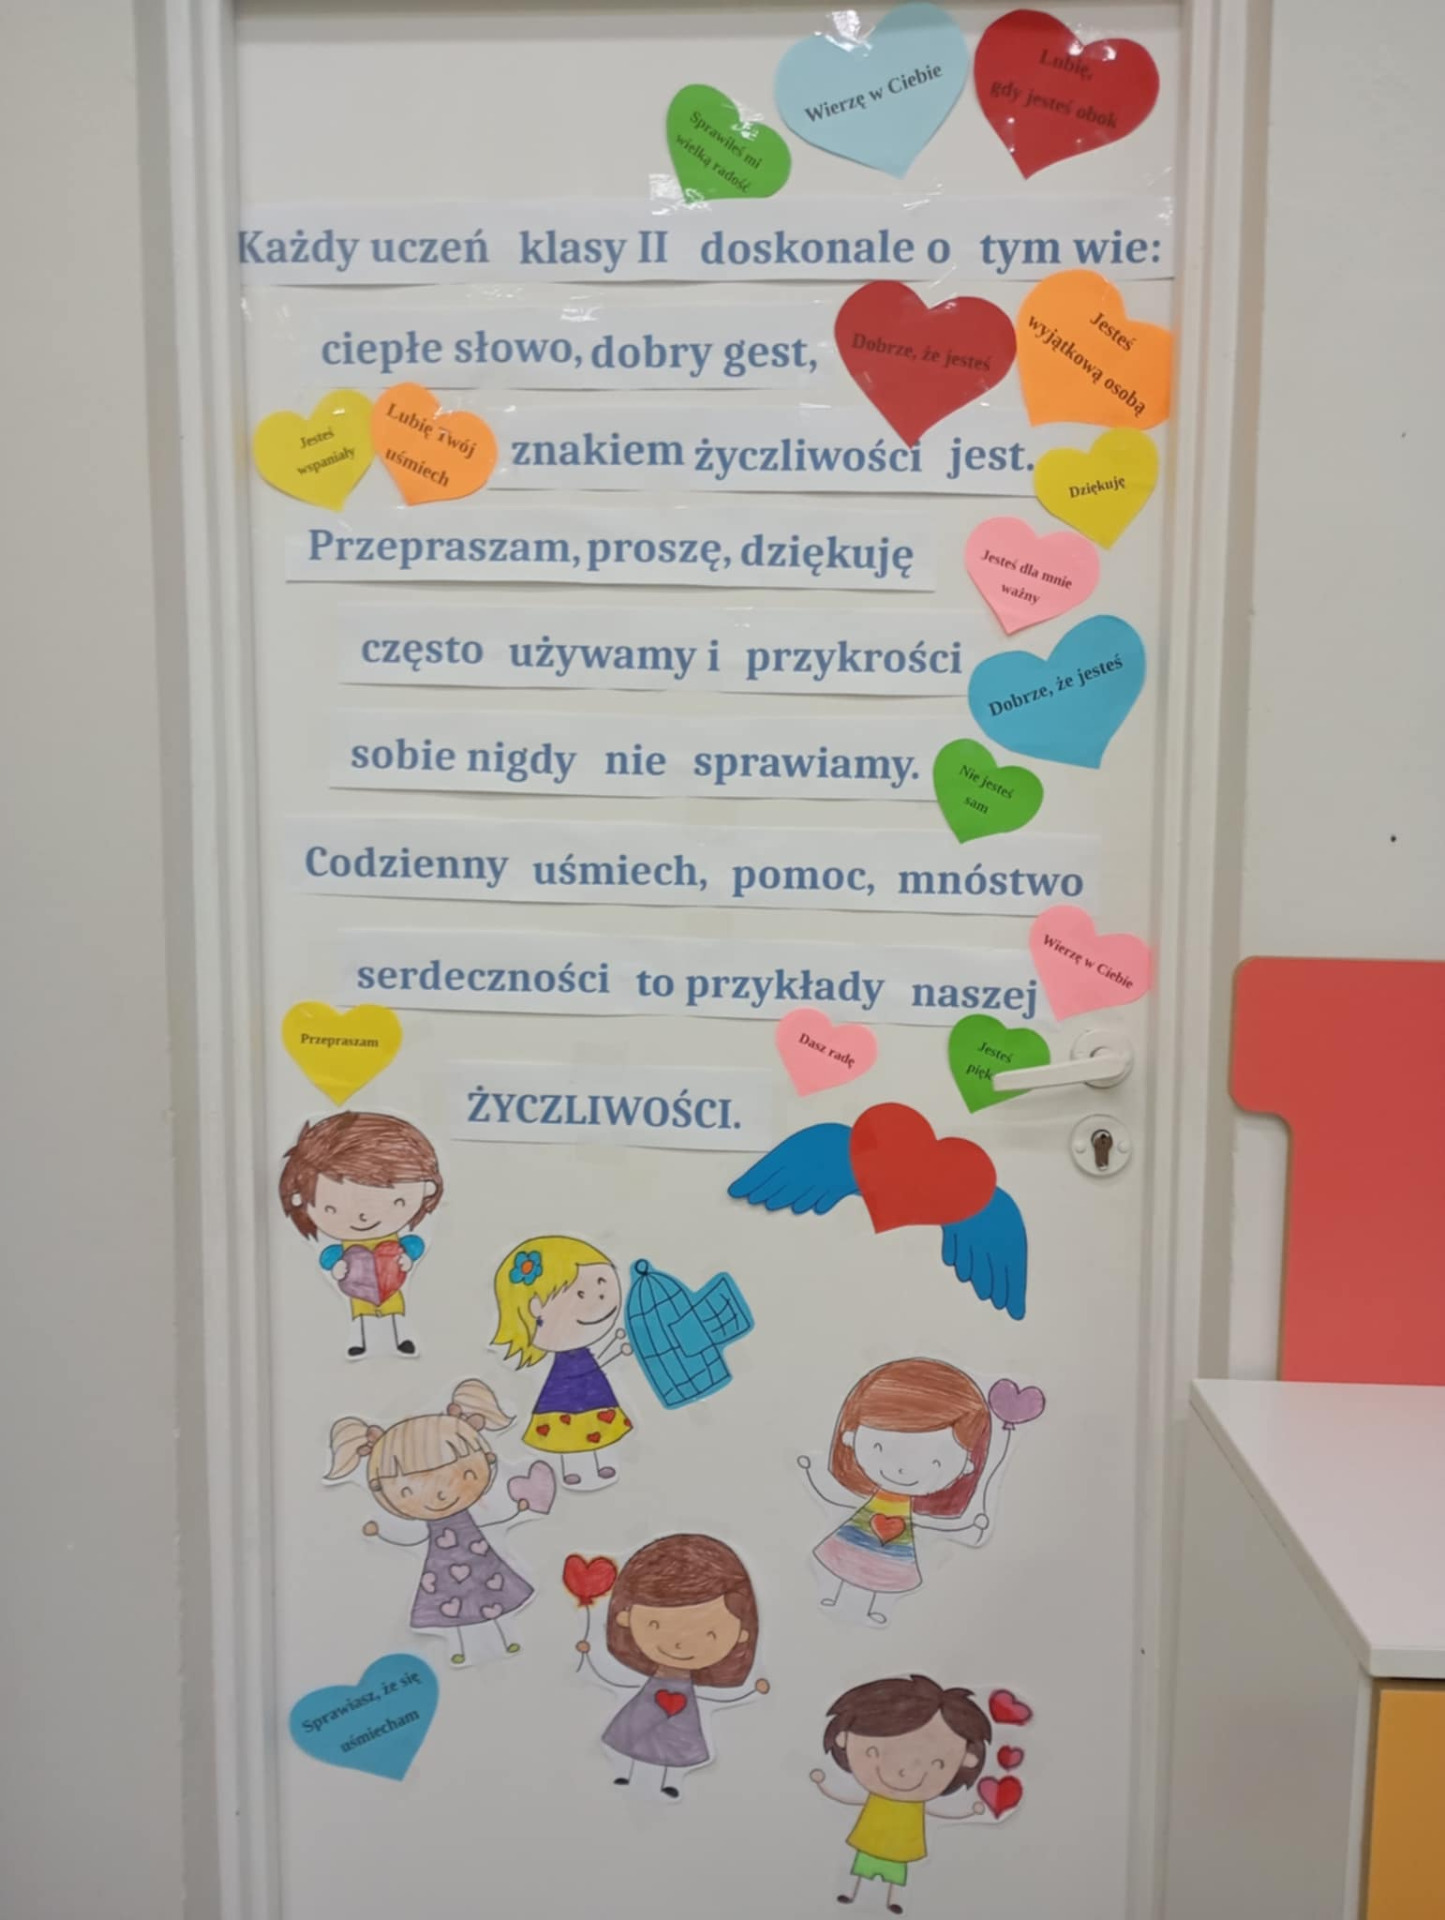 Wierzę w Ciebie
Lubię,
gdy jesteś obok
Sprawiłeś mi
wielką radość
Każdy uczeń klasy II doskonale o tym wie:
ciepłe słowo, dobry gest,
Dobrze, że jesteś
Jesteś
wyjątkową osobą
Jesteś
wspaniały
Lubię Twój
uśmiech
znakiem życzliwości jest.
Dziękuję
Przepraszam, proszę, dziękuję
Jesteś dla mnie
ważny
często używamy i przykrości
Dobrze, że jesteś
sobie nigdy nie sprawiamy.
Nie jesteś
sam
Codzienny uśmiech, pomoc, mnóstwo
serdeczności to przykłady naszej
Wierzę w Ciebie
Przepraszam
Dasz radę
Jesteś
ŻYCZLIWOŚCI.
Sprawiasz, że się
uśmiecham